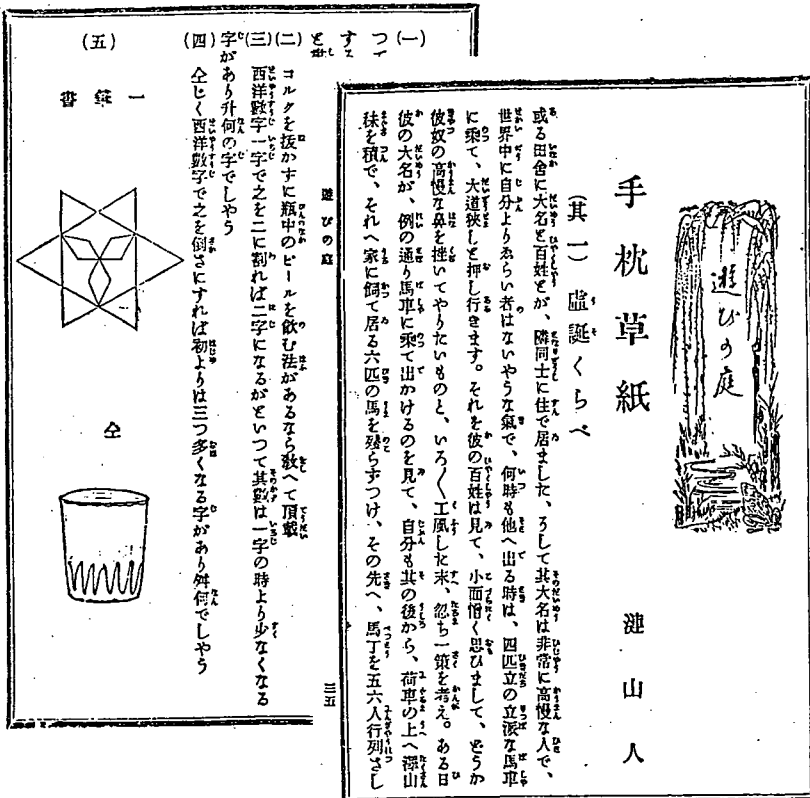 遊びの庭
手枕草紙
漣山人
(其一) 虛誕くらべ
或る田舎に大名と百姓とが、隣同士に住で居ました、そして其大名は非常に高慢な人で、
世界中に自分よりゑらい者はないやうな氣で、何時も他へ出る時は、四匹立の立派な馬車
に乘て、大道狹しと押し行きます。それを彼の百姓は見て、小面憎く思ひまして、どうか
彼奴の高慢な鼻を挫いてやりたいものと、いろ〱工風した末、忽ち一策を考え。ある日
彼の大名が、例の通り馬車に乘て出かけるのを見て、自分も其の後から、荷車の上へ澤山
秣を積で、それへ家に飼て居る六匹の馬を殘らずつけ、その先へ、馬丁を五六人行列さし
遊びの庭
三五
(一)
つて
する
と
(二) コルクを拔かすに瓶中のビールを飮む法があるなら敎へて頂戴
(三) 西洋數字一字で之を二に割れば二字になるがといつて其數は一字の時より少なくなる
字があり升何の字でしやう
(四) 仝じく西洋數字で之を倒さにすれば初よりは三つ多くなる字があり舛何でしやう
(五)
一筆書
仝